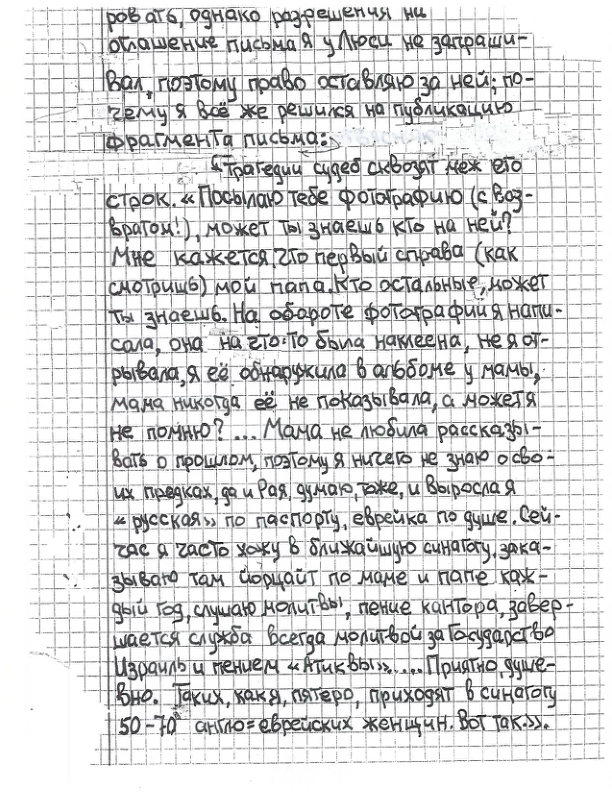 ровать, однако разрешения ни
оглашение письма я у Люси не запраши-
вал, поэтому право оставляю за ней; по-
чему я всё же решился на публикацию
фрагмента письма:
Трагедии судеб сквозят меж его
строк. «Посылаю тебе фотографию (с воз-
вратом!), может ты знаешь кто на ней?
Мне кажется, что первый справа (как
смотришь) мой папа. Кто остальные, может
ты знаешь. На обороте фотографии я напи-
сала, она на что-то была наклеена, не я от-
рывала, я её обнаружила в альбоме у мамы,
мама никогда её не показывала, а может я
не помню? ... Мама не любила рассказы-
вать о прошлом, поэтому я ничего не знаю о сво-
их предках, да и Рая, думаю, тоже, и выросла я
«русская» по паспорту, еврейка по душе. Сей-
час я часто хожу в ближайшую синагогу, зака-
зываю там йорцайт по маме и папе каж-
дый год, слушаю молитвы, пение кантора, завер-
шается служба всегда молитвой за Государство
Израиль и пением «Атиквы»..... Приятно, душе-
вно. Таких, как я, пятеро, приходят в синагогу
50-70 англо=еврейских женщин. Вот так.».